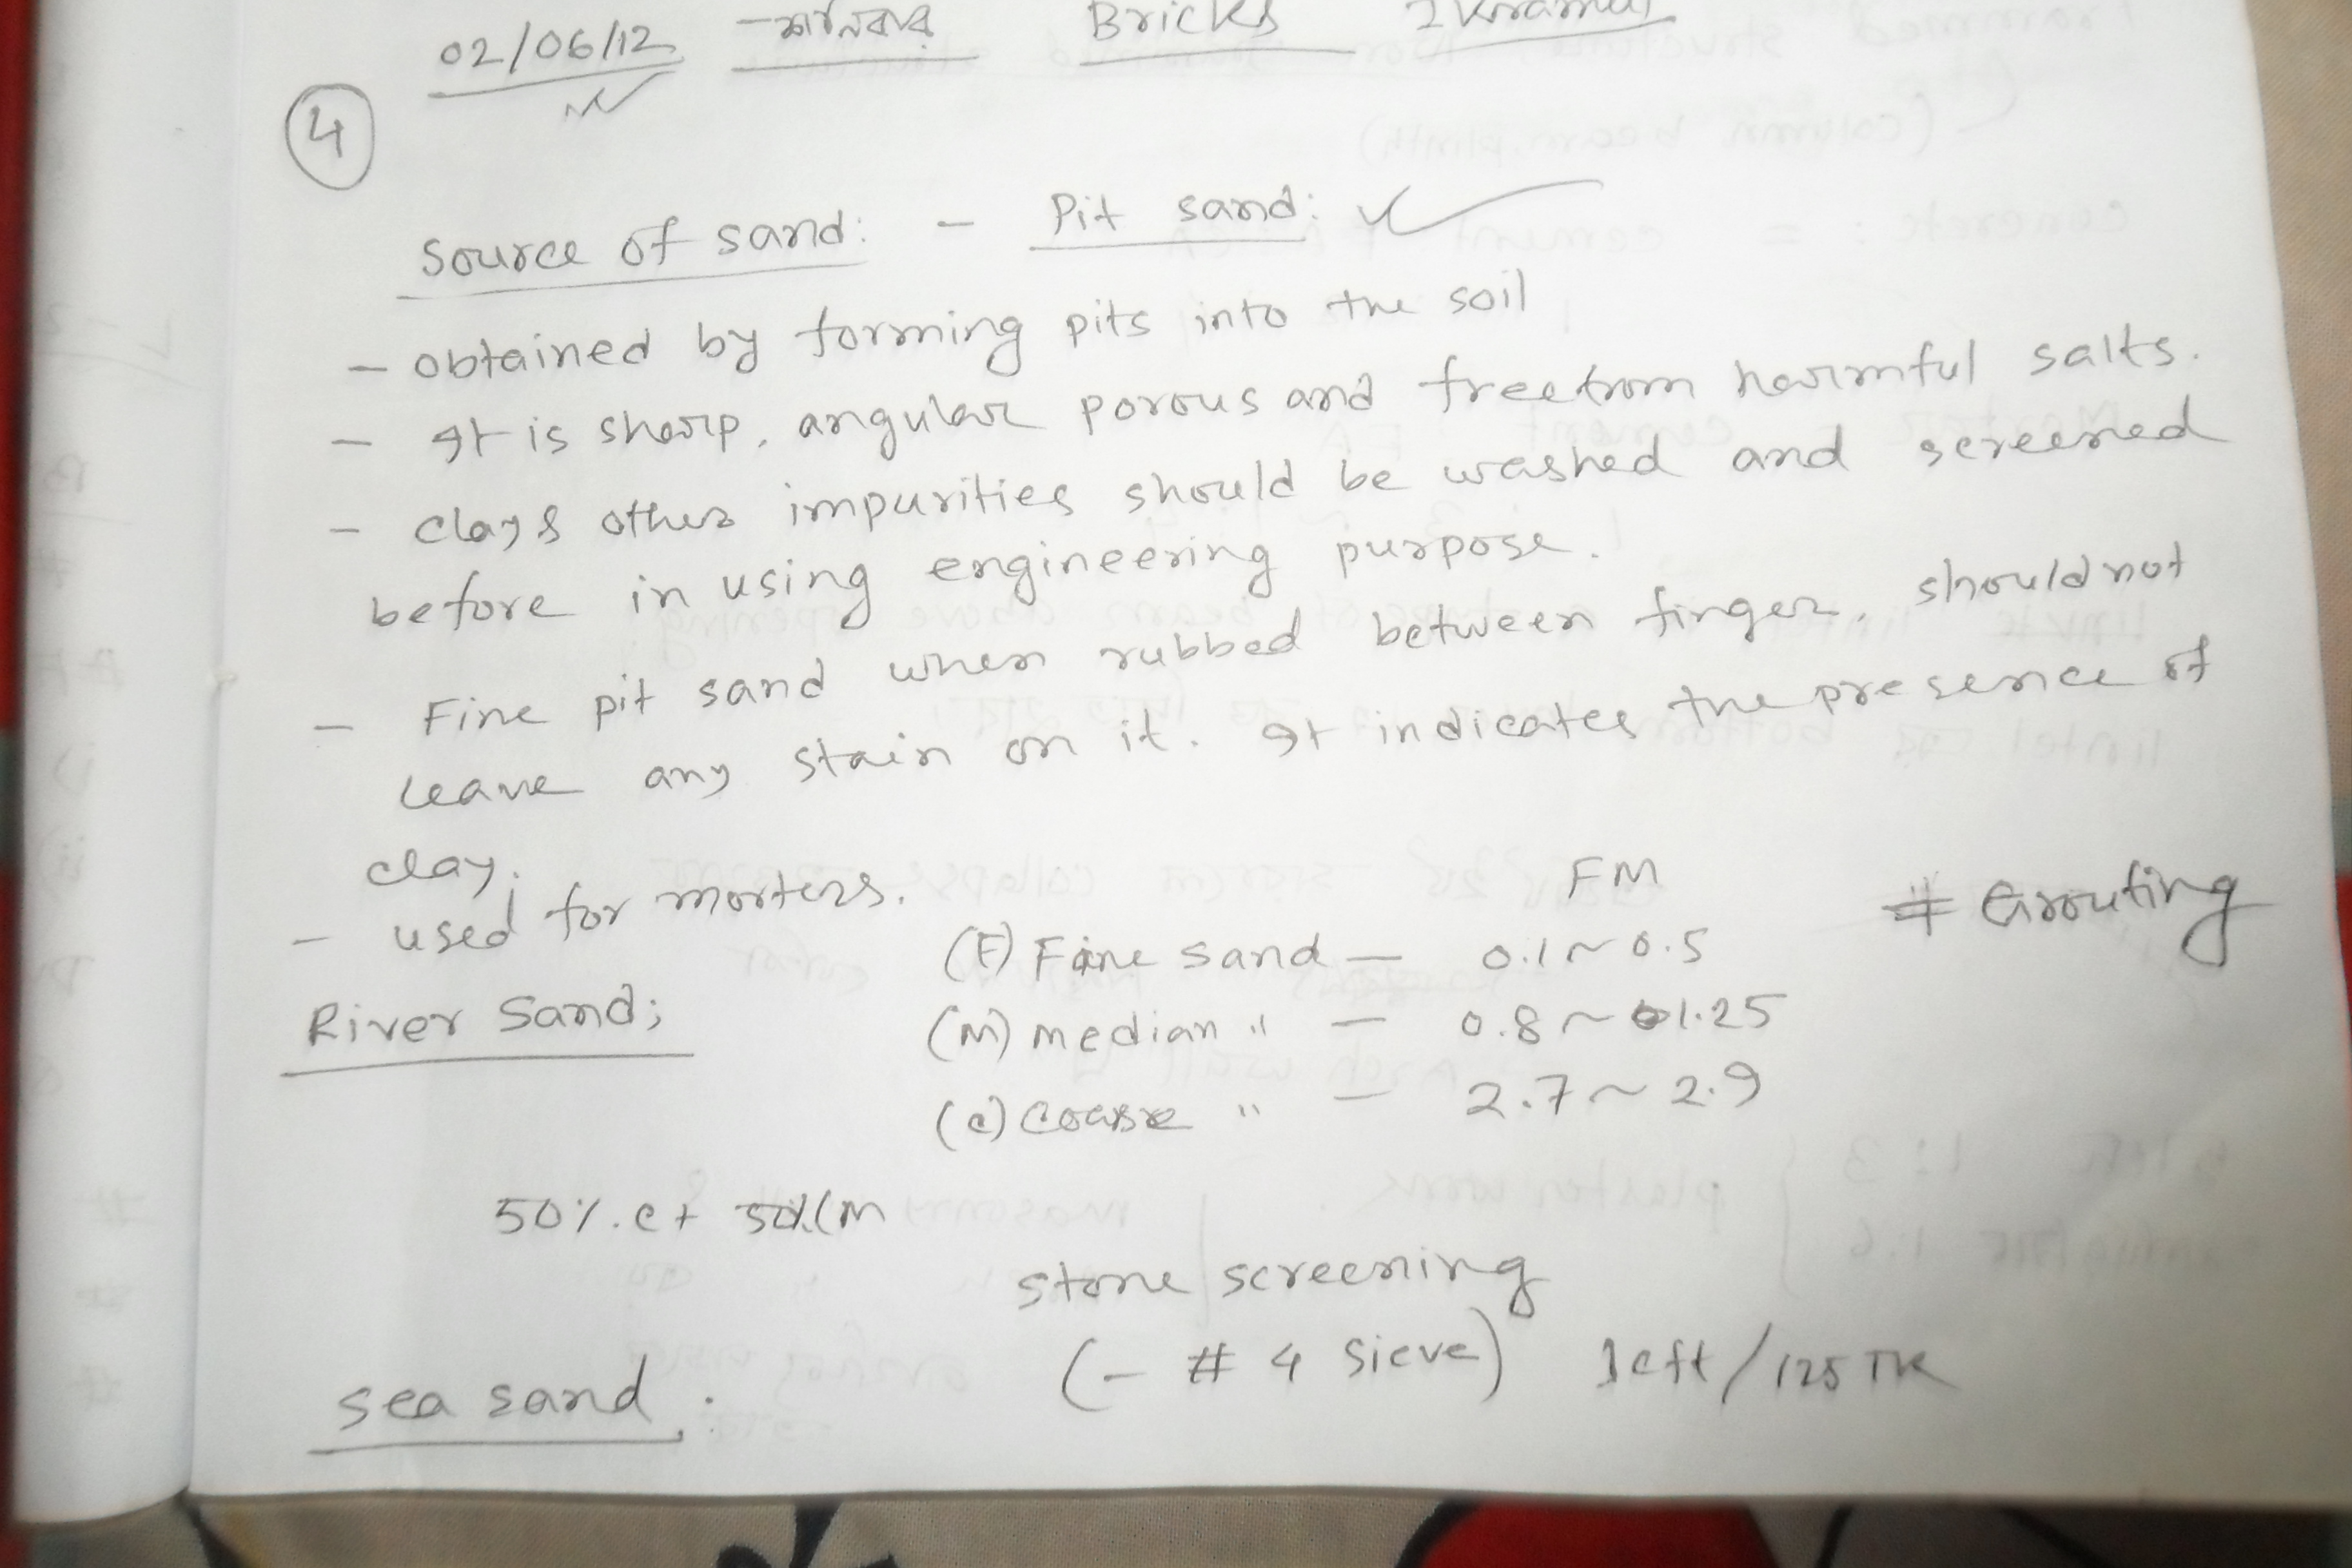 02/06/12 - শনিবার Bricks Ikramul
4
Source of sand: - Pit sand:
- obtained by forming pits into the soil
- It is sharp, angular porous and free from harmful salts.
- Clay & other impurities should be washed and screened
before in using engineering purpose.
- Fine pit sand when rubbed between finger, should not
leave any stain on it. It indicates the presence of
clay.
- used for morters.
FM
# Grouting
(F) Fine sand - 0.1 ~ 0.5
River Sand;
(M) median " - 0.8 ~ 1.25
(C) Coarse " - 2.7 ~ 2.9
50%.c + 50%(M
stone screening
(- # 4 sieve) 1cft/125 TK
sea sand: